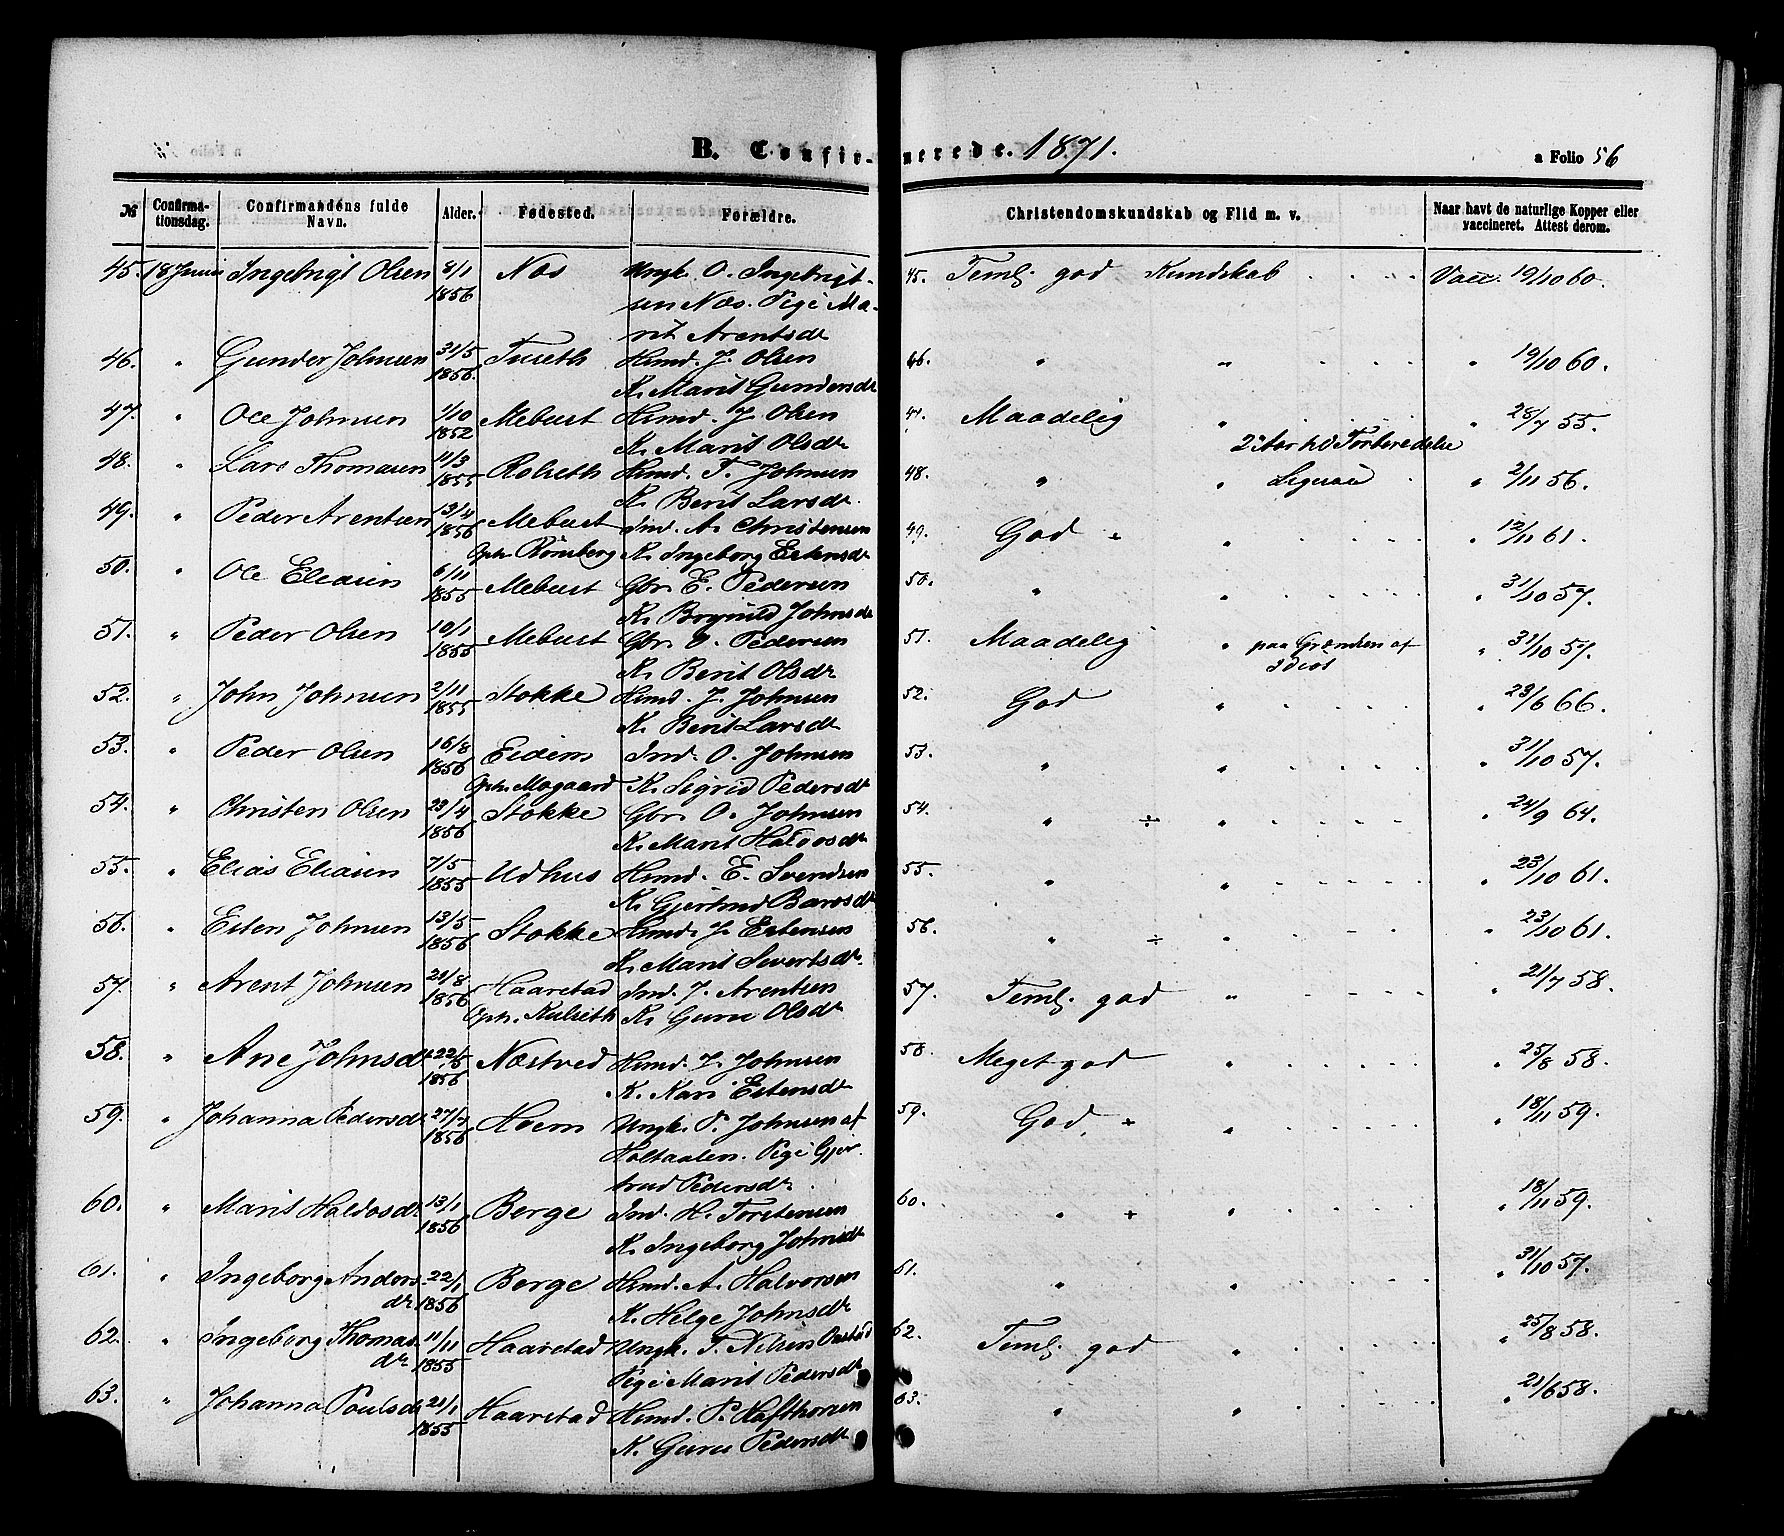 B. Confirmerede. 1871.
a Folio 56
№ Confirmationsdag. Confirmandens fulde Navn. Alder. Fødested. Forældre. Christendomskundskab og Flid m. v. Naar havt de naturlige Kopper eller vaccineret. Attest derom.
45. 18 Juni Ingebrigt Olsen 8/1 1856 Næs Ungk. O. Ingebrigt- 45. Teml. god Kundskab Vacc. 19/10 60.
sen Næs. Pige Ma-
rit Arentsdr
46. " Gunder Johnsen 31/5 1856. Tuseth Husmd. J. Olsen 46. " " " 19/10 60.
K. Marit Gundersdr
47. " Ole Johnsen 1/10 1852 Mebust Husmd. J. Olsen 47. Maadelig " " 28/7 55.
K. Marit Olsdr 2 Aar Forberedelse
48. " Lars Thomasen 11/3 1855 Rolseth Husmd. T. Johnsen 48. " " Ligesaa " 2/11 56.
K. Berit Larsdr
49. " Peder Arentsen 13/4 1856 Mebust Ind. A. Christensen 49. God + " " 12/11 61.
Oph. Rønsberg K. Ingeborg Estensdr
50. " Ole Eliasen 6/11 1855 Mebust Gbr. E. Pedersen 50. " " " 31/10 57.
K. Brynild Johnsdr
51. " Peder Olsen 10/1 1855 Mebust Gbr. O. Pedersen 51. Maadelig " paa Grændsen af " 31/10 57.
K. Berit Olsdr Idiot
52. " John Johnsen 2/11 1855 Stokke Husmd. J. Johnsen 52. God " " 23/6 66.
K. Berit Larsdr
53. " Peder Olsen 16/8 1856 Eidem Ind. O. Johnsen 53. " " " 31/10 57.
Oph. Mogaard K. Sigrid Pedersdr
54. " Christen Olsen 23/4 1856 Stokke Gbr. O. Johnsen 54. " ÷ " " 24/9 64.
K. Marit Haldosdr
55. " Elias Eliasen 7/5 1855 Udhus Husmd. E. Svendsen 55. " " " 23/10 61.
K. Gjertrud Barosdr
56. " Esten Johnsen 13/5 1856 Stokke Husmd. J. Estensen 56. " ÷ " " 23/10 61.
K. Marit Sivertsdr.
57. " Arent Johnsen 21/8 1856 Haarstad Ind. J. Arentsen 57. Teml. god " " 21/7 58.
Oph. Kulseth K. Guru Olsdr
58. " Ane Johnsdr. 22/5 1856 Næstved Husmd. J. Johnsen 58. Meget god " " 25/8 58.
K. Kari Estensdr
59. " Johanna Pedersdr. 27/7 1856 Hoem Ungk. P. Johnsen af 59. God + " " 18/11 59.
Holtaalen. Pige Gjer-
trud Pedersdr.
60. " Marit Haldosdr. 13/1 1856 Berge Ind. H. Torstensen 60. " + " " 18/11 59.
K. Ingeborg Johnsdr
61. " Ingeborg Anders- 22/1 1856 Berge Husmd. A. Halvorsen 61. " " " 31/10 57.
dr K. Helge Johnsdr
62. " Ingeborg Thomas- 11/11 1855 Haarstad Ungk. T. Nilsen 62. Teml. god " " 25/8 58.
dr Pige Marit Pedersdr
63. " Johanna Poulsdr 21/1 1855 Haarstad Husmd. P. Hafthorsen 63. " " " 21/6 58.
K. Guru Pedersdr